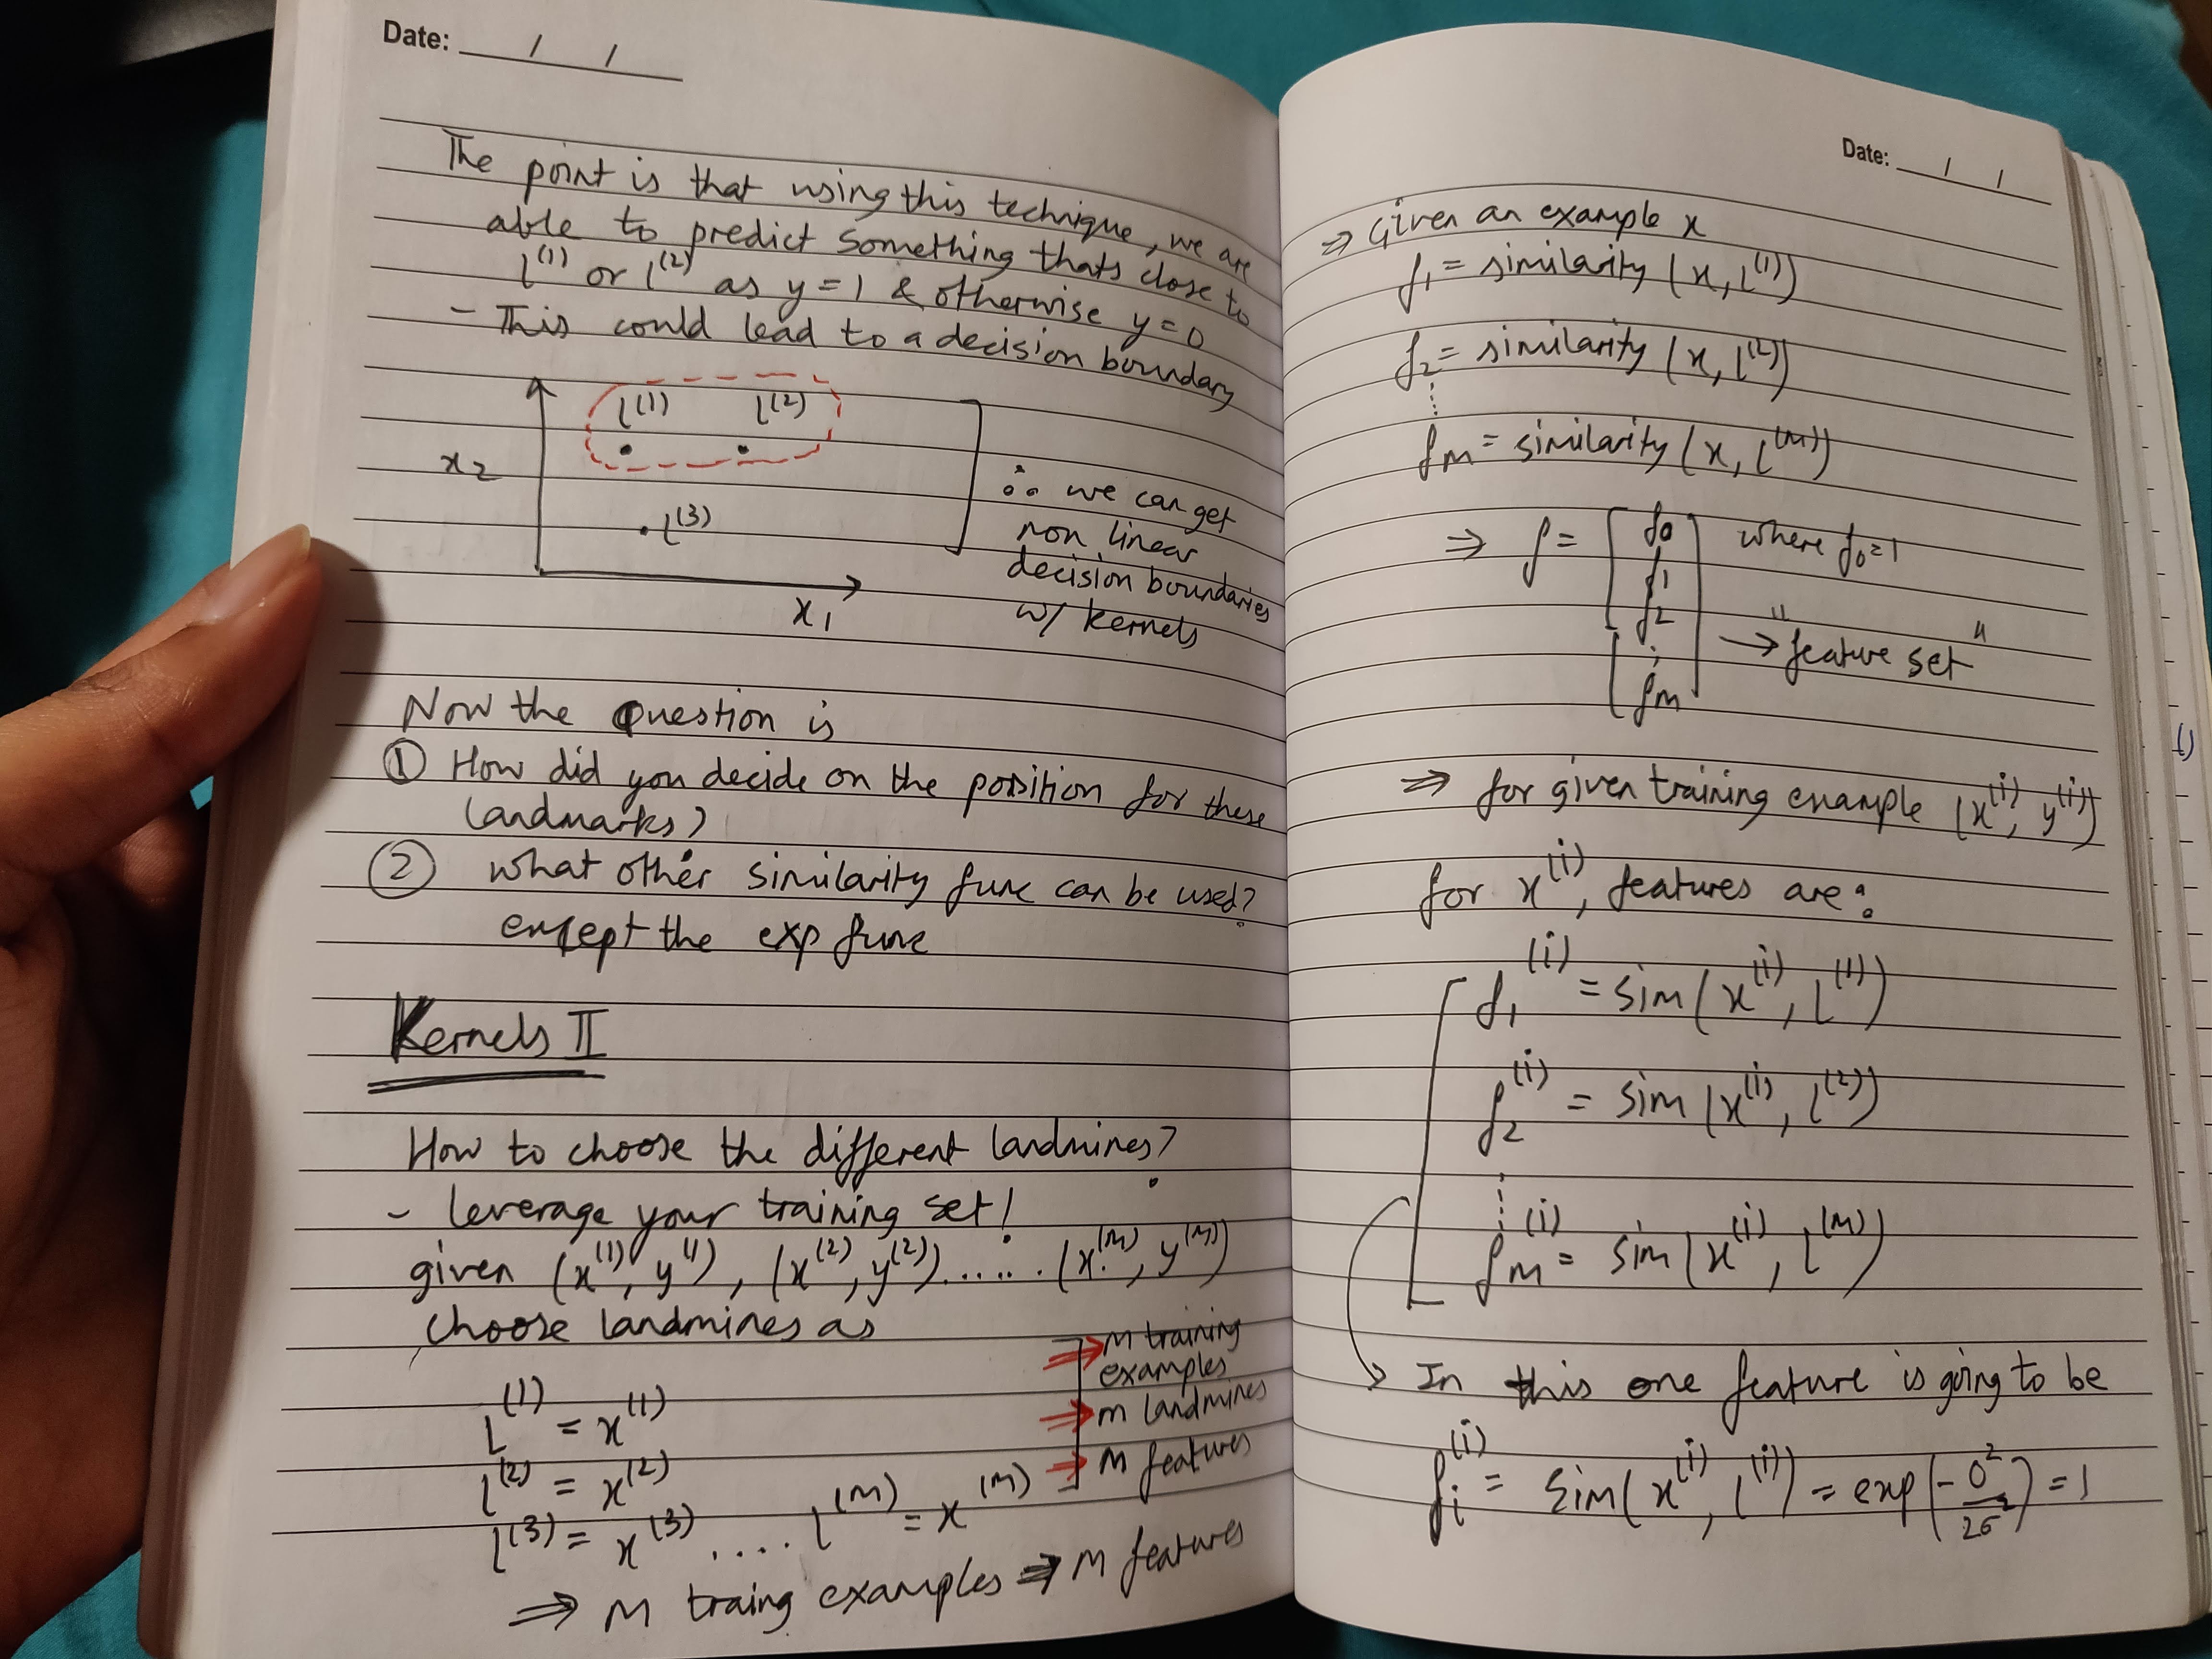 Date: / /
The point is that using this technique, we are
able to predict something thats close to
l⁽¹⁾ or l⁽²⁾ as y=1 & otherwise y=0
- This could lead to a decision boundary
l⁽¹⁾ l⁽²⁾
x₂
l⁽³⁾
x₁
∴ we can get
non linear
decision boundaries
w/ kernels
Now the question is
① How did you decide on the position for these
landmarks?
② what other similarity func can be used?
except the exp func
Kernels II
How to choose the different landmines?
- leverage your training set!
given (x⁽¹⁾, y⁽¹⁾), (x⁽²⁾, y⁽²⁾)...... (x⁽ᵐ⁾, y⁽ᵐ⁾)
choose landmines as
L⁽¹⁾ = x⁽¹⁾
l⁽²⁾ = x⁽²⁾
l⁽³⁾ = x⁽³⁾ .... l⁽ᵐ⁾ = x⁽ᵐ⁾
⇒ M training
examples
⇒ m landmines
⇒ M features
⇒ M traing examples ⇒ M features
Date: / /
⇒ Given an example x
f₁ = similarity (x, l⁽¹⁾)
f₂ = similarity (x, l⁽²⁾)
⋮
fₘ = similarity (x, l⁽ᵐ⁾)
⇒ f = [f₀ f₁ f₂ ⋮ fₘ] where f₀=1
→ "feature set"
⇒ for given training example (x⁽ⁱ⁾, y⁽ⁱ⁾)
for x⁽ⁱ⁾, features are:
f₁⁽ⁱ⁾ = sim(x⁽ⁱ⁾, l⁽¹⁾)
f₂⁽ⁱ⁾ = sim(x⁽ⁱ⁾, l⁽²⁾)
⋮
fₘ⁽ⁱ⁾ = sim(x⁽ⁱ⁾, l⁽ᵐ⁾)
→ In this one feature is going to be
fᵢ⁽ⁱ⁾ = sim(x⁽ⁱ⁾, l⁽ⁱ⁾) = exp(-0²/2σ²) = 1